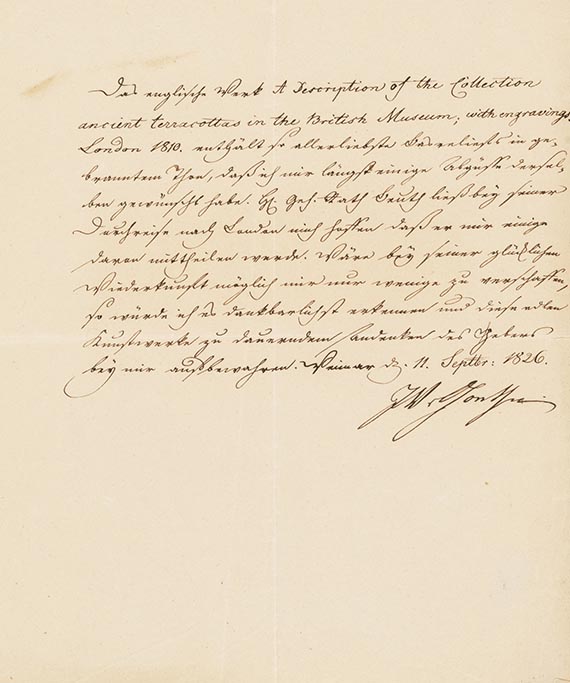 Das englische Werk A Description of the Collection
ancient terracottas in the British Museum; with engravings,
London 1810. enthält so allerliebste Basreliefs in ge-
branntem Thon, daß ich mir längst einige Abgüsse dersel-
ben gewünscht habe. H. Geh. Rath Beuth ließ bey seiner
Durchreise nach London mich hoffen daß er mir einige
davon mittheilen werde. Wäre bey seiner glücklichen
Wiederkunft möglich mir nur wenige zu verschaffen,
so würde ich es dankbarlichst erkennen und diese edlen
Kunstwerke zu dauerndem Andenken des Gebers
bey mir aufbewahren. Weimar d. 11. Septbr: 1826.
JWvGoethe